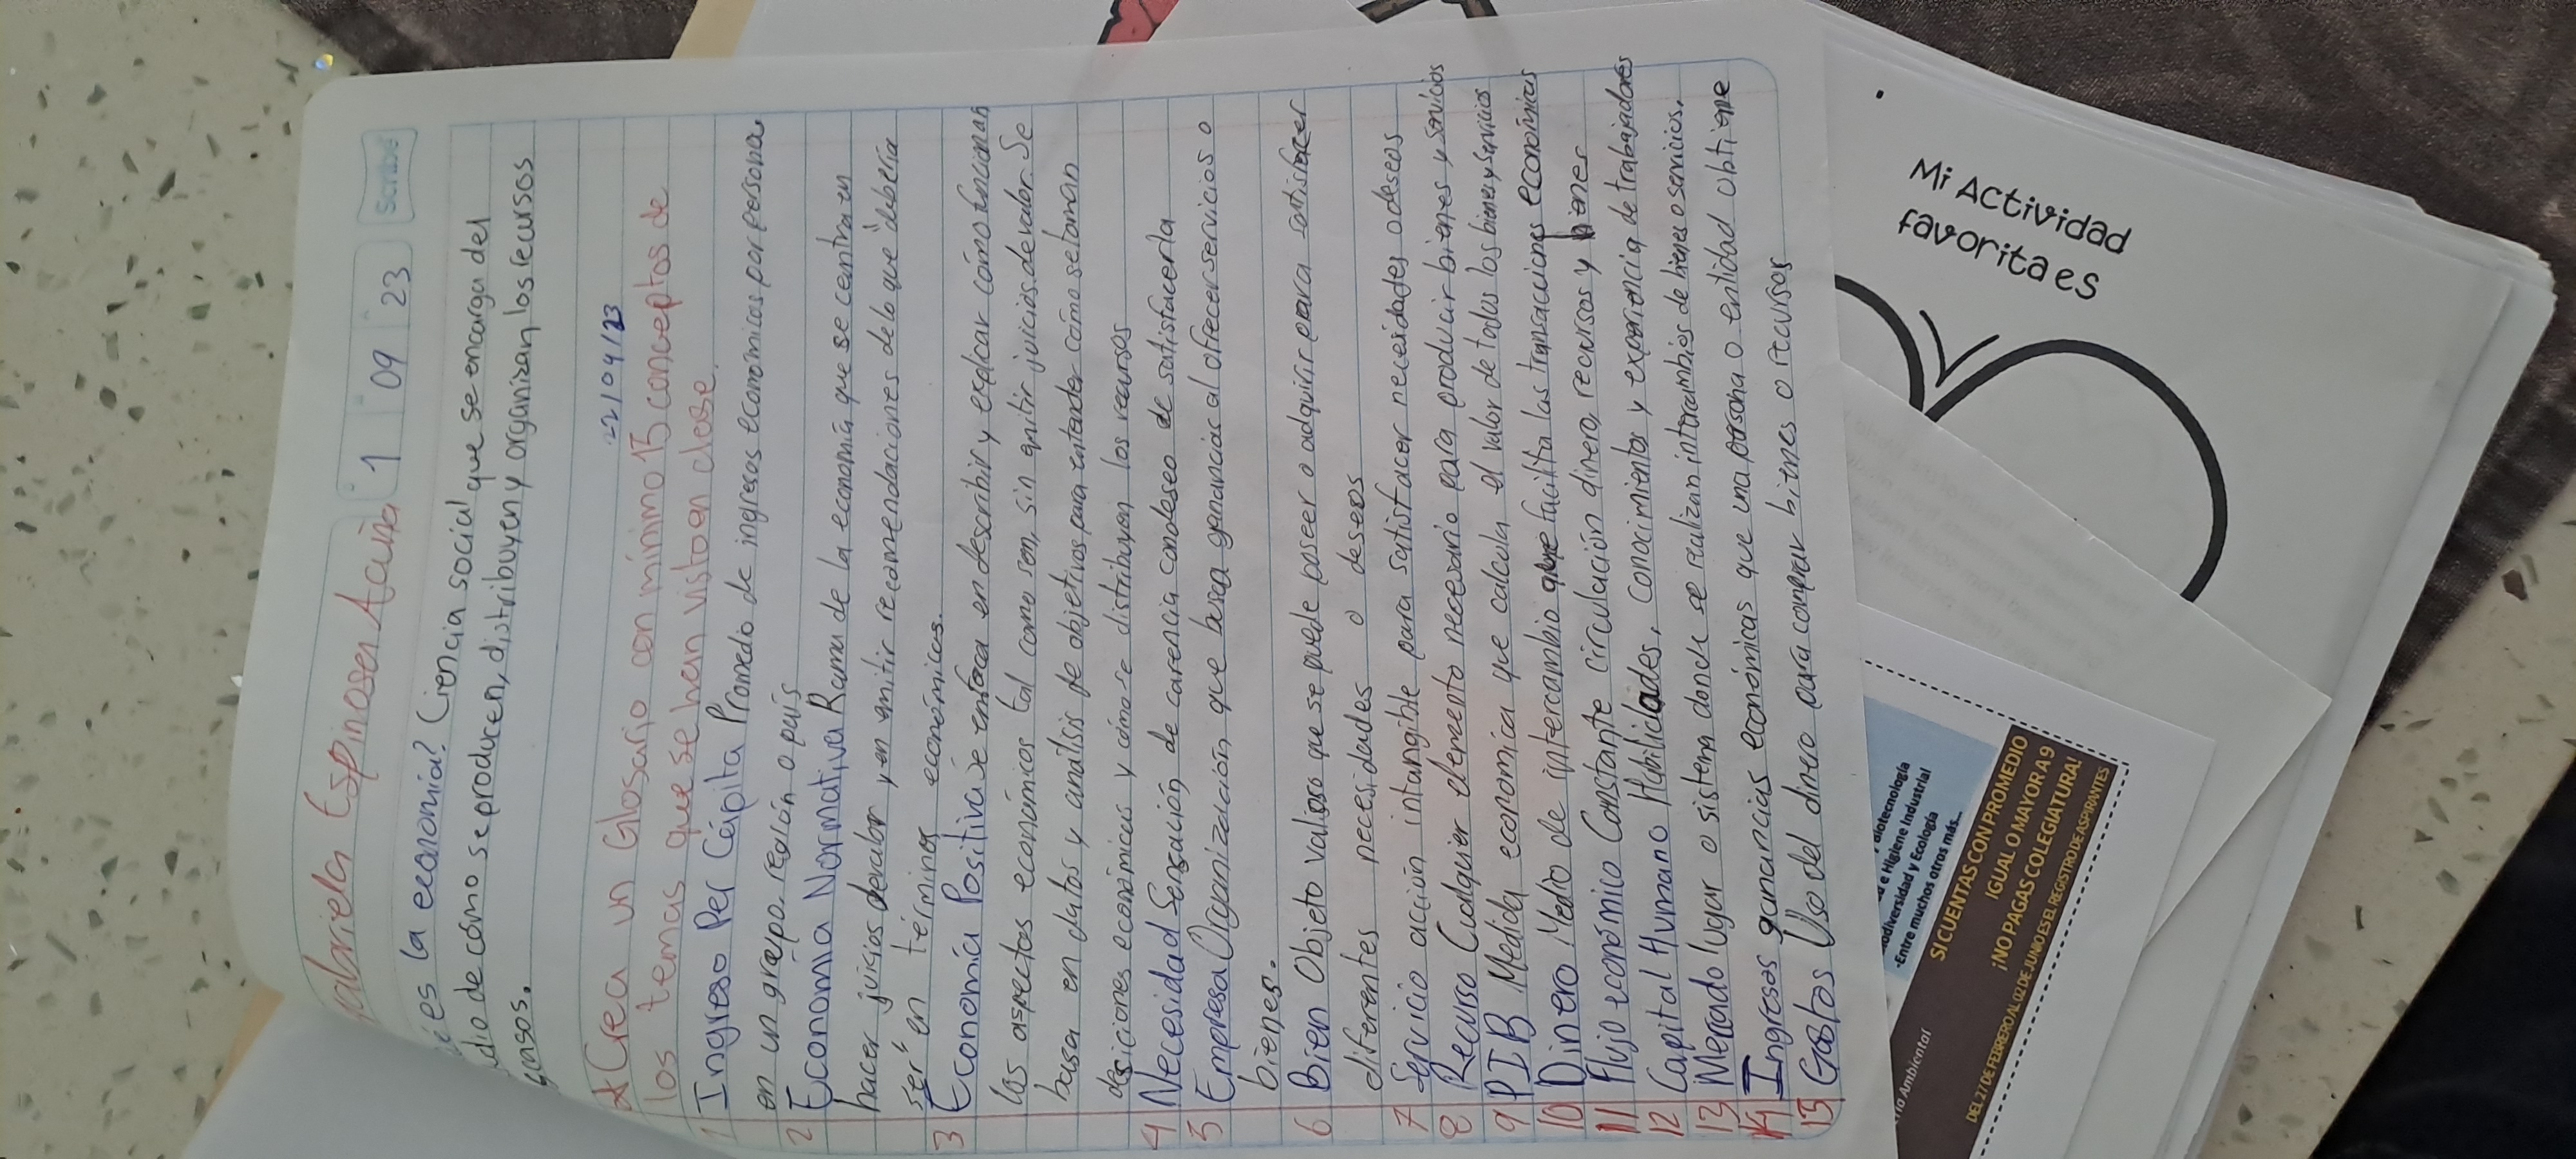 Gabriela Espinosa Acuña
1 09 23
Scribe
es la economía? Ciencia social que se encarga del
dio de cómo se producen, distribuyen y organizan los recursos
scasos.
22/09/23
Crea un Glosario con mínimo 15 conceptos de
los temas que se han visto en clase.
1 Ingreso Per Cápita Promedio de ingresos económicos por persona
en un grupo, región o país
2 Economía Normativa Rama de la economía que se centra en
hacer juicios de valor y en emitir recomendaciones de lo que "debería
ser" en términos económicos.
3 Economía Positiva Se enfoca en describir y explicar cómo funcionan
los aspectos económicos tal como son, sin emitir juicios de valor. Se
basa en datos y análisis de objetivos para entender cómo se toman
desiciones económicas y cómo se distribuyen los recursos
4 Necesidad Sensación de carencia con deseo de satisfacerla
5 Empresa Organización que busca ganancias al ofrecer servicios o
bienes.
6 Bien Objeto valioso que se puede poseer o adquirir para satisfacer
diferentes necesidades o deseos
7 Servicio acción intangible para satisfacer necesidades o deseos
8 Recurso Cualquier elemento necesario para producir bienes y servicios
9 PIB Medida economica que calcula el valor de todos los bienes y servicios
10 Dinero Medio de intercambio que facilita las transacciones económicas
11 Flujo económico Constante circulación dinero, recursos y bienes
12 Capital Humano Habilidades, conocimientos y experiencia de trabajadores
13 Mercado lugar o sistema donde se realizan intercambios de bienes o servicios.
14 Ingresos ganancias económicas que una persona o entidad obtiene
15 Gastos Uso del dinero para comprar bienes o recursos
Mi Actividad
favorita es
e Higiene Industrial
odiversidad y Ecología
-Entre muchos otros más...
SI CUENTAS CON PROMEDIO
IGUAL O MAYOR A 9
¡NO PAGAS COLEGIATURA!
DEL 27 DE FEBRERO AL 02 DE JUNIO ES EL REGISTRO DE ASPIRANTES
Ambiental